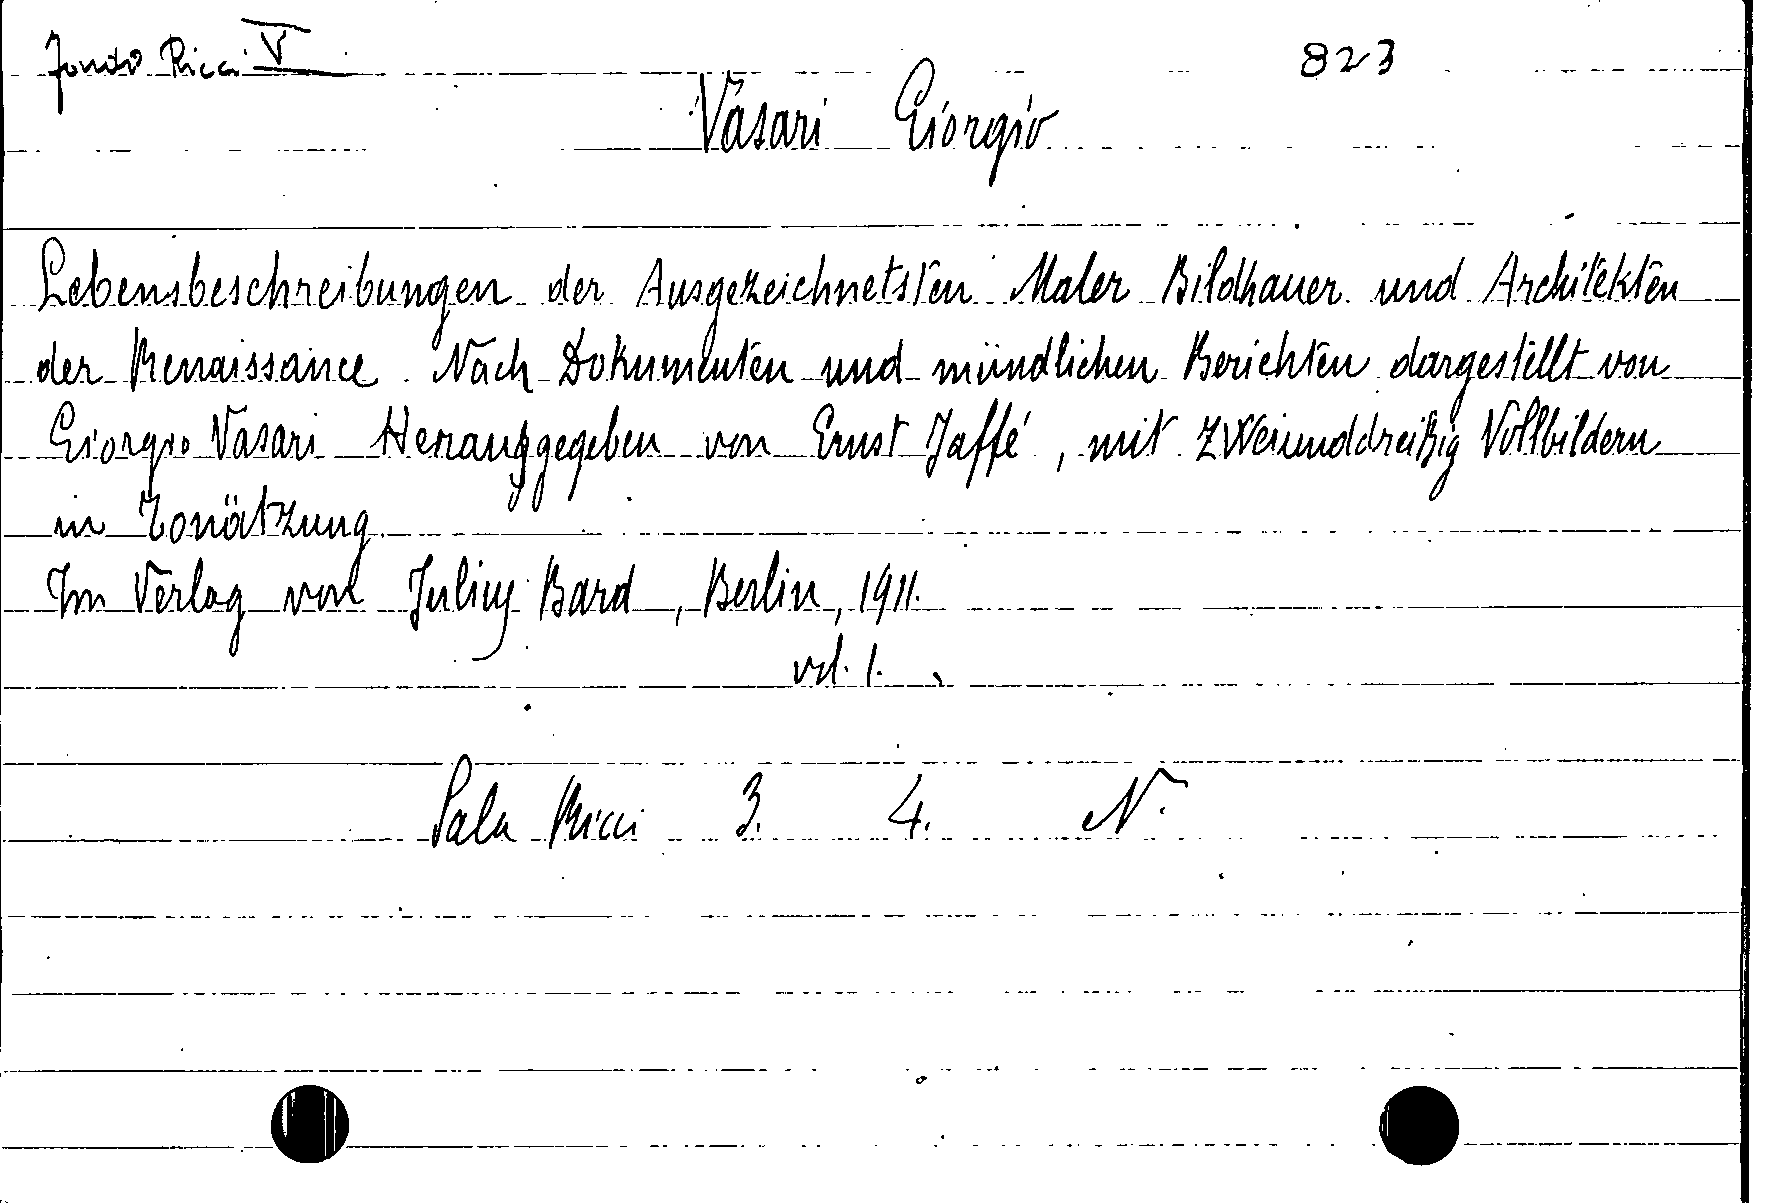 Fondo Ricci V 823
Vasari Giorgio
Lebensbeschreibungen der Ausgezeichnetsten Maler Bildhauer und Architekten
der Renaissance. Nach Dokumenten und mündlichen Berichten dargestellt von
Giorgio Vasari Herausgegeben von Ernst Jaffé, mit zweiunddreißig Vollbildern
in Tonätzung
Im Verlag von Julius Bard, Berlin, 1911.
vol. 1.
Sala Ricci 3. 4. N.